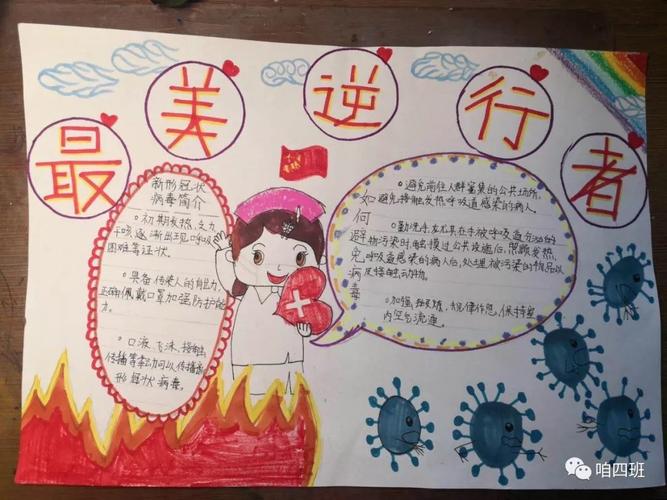 最美逆行者
新形冠状
病毒简介
初期发热、乏力
干咳逐渐出现呼吸
困难等症状。
具备传染人的能力,
正确佩戴口罩加强防护能
力。
口液、飞沫、接触
传播等
可以传播新
形冠状病毒。
如何避免病毒
避免前往人群密集的公共场所,
避免接触发热呼吸道感染的病人。
勤洗手,尤其在手被呼吸道分泌
物污染时、触摸过公共设施后、照顾发热
呼吸道感染的病人后、处理被污染的物品以
及接触动物。
加强锻炼,规律作息,保持室
内空气流通。
咱四班